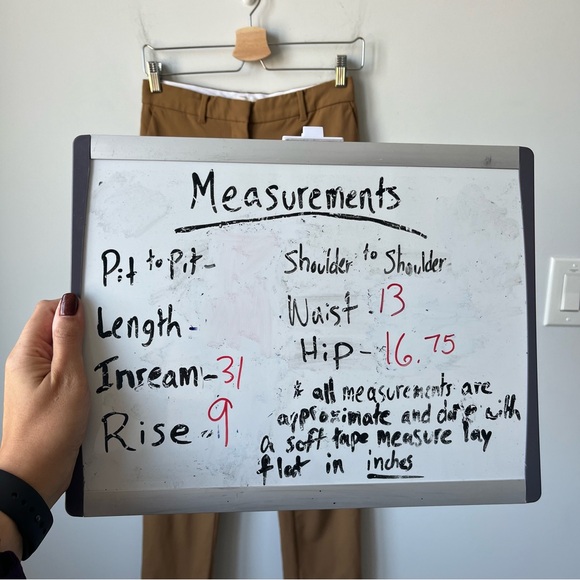 Measurements
Pit to Pit -
Length -
Inseam - 31
Rise - 9
Shoulder to Shoulder
Waist - 13
Hip - 16.75
* all measurements are
approximate and done with
a soft tape measure lay
flat in inches